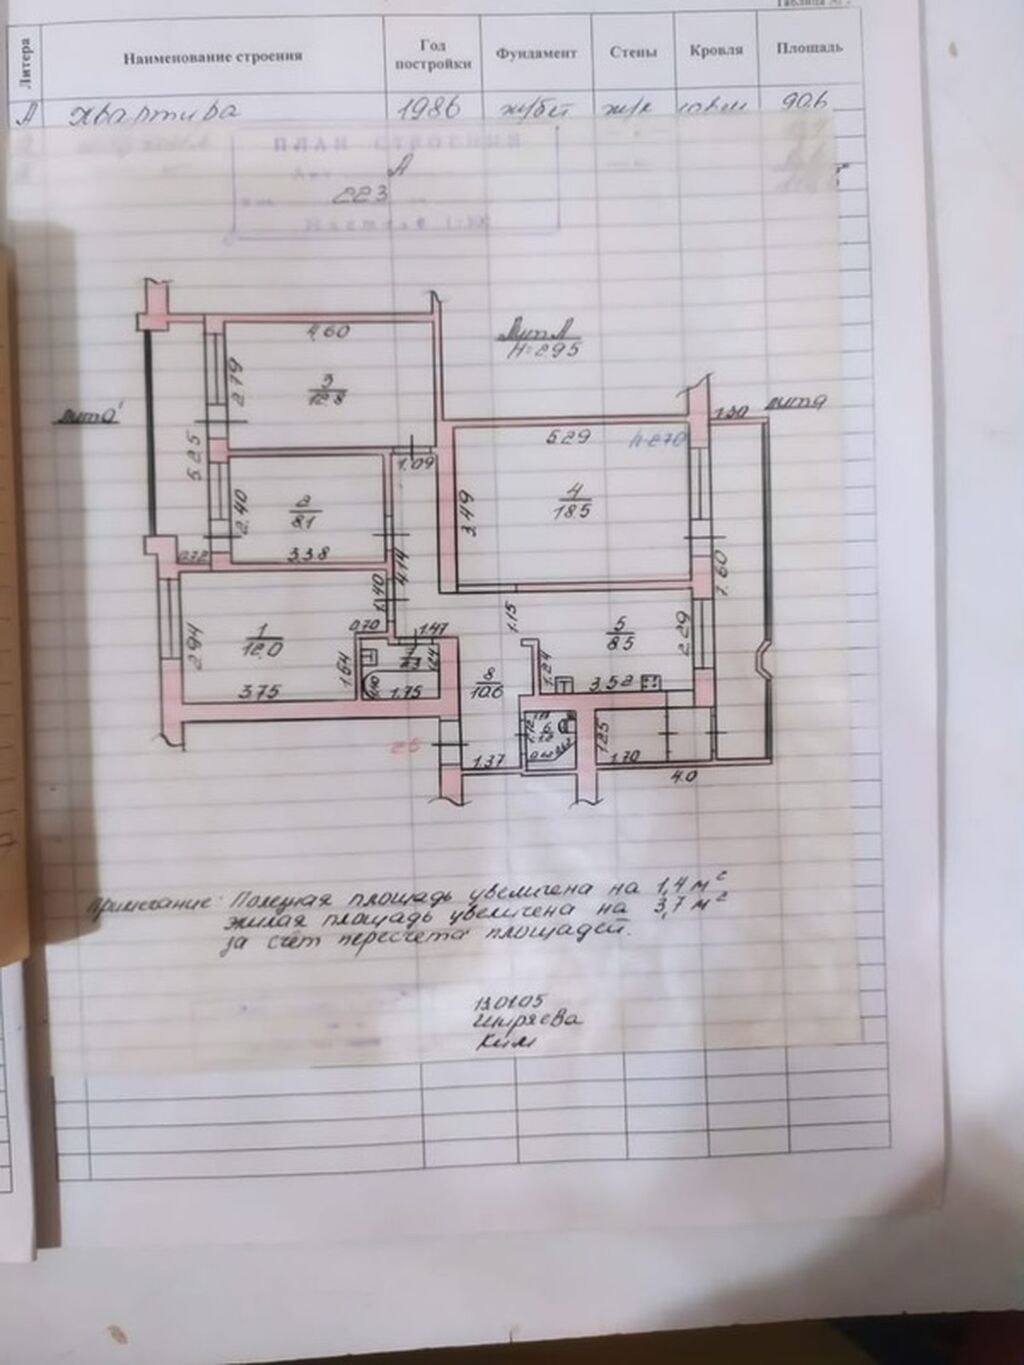 Литера
Наименование строения
Год постройки
Фундамент
Стены
Кровля
Площадь
А квартира 1986 ж/бет 90.6
ПЛАН СТРОЕНИЙ
А
223
4.60
Лит А
Н=2.95
2.79
3
12.8
1.30
5.29
h-2.70
5.25
1.09
2.40
2
8.1
3.49
4
18.5
0.72
3.38
4.14
7.60
1.40
1.15
5
8.5
2.29
2.94
1
12.0
0.70
1.47
1.64
1.24
8
10.6
3.75
1.75
3.52
6
1.2
1.25
25
1.37
1.70
4.0
Примечание: Полезная площадь увеличена на 1,4 м²
жилая площадь увеличена на 3,7 м²
за счёт пересчета площадей.
13.01.05
Ширяева
Ким